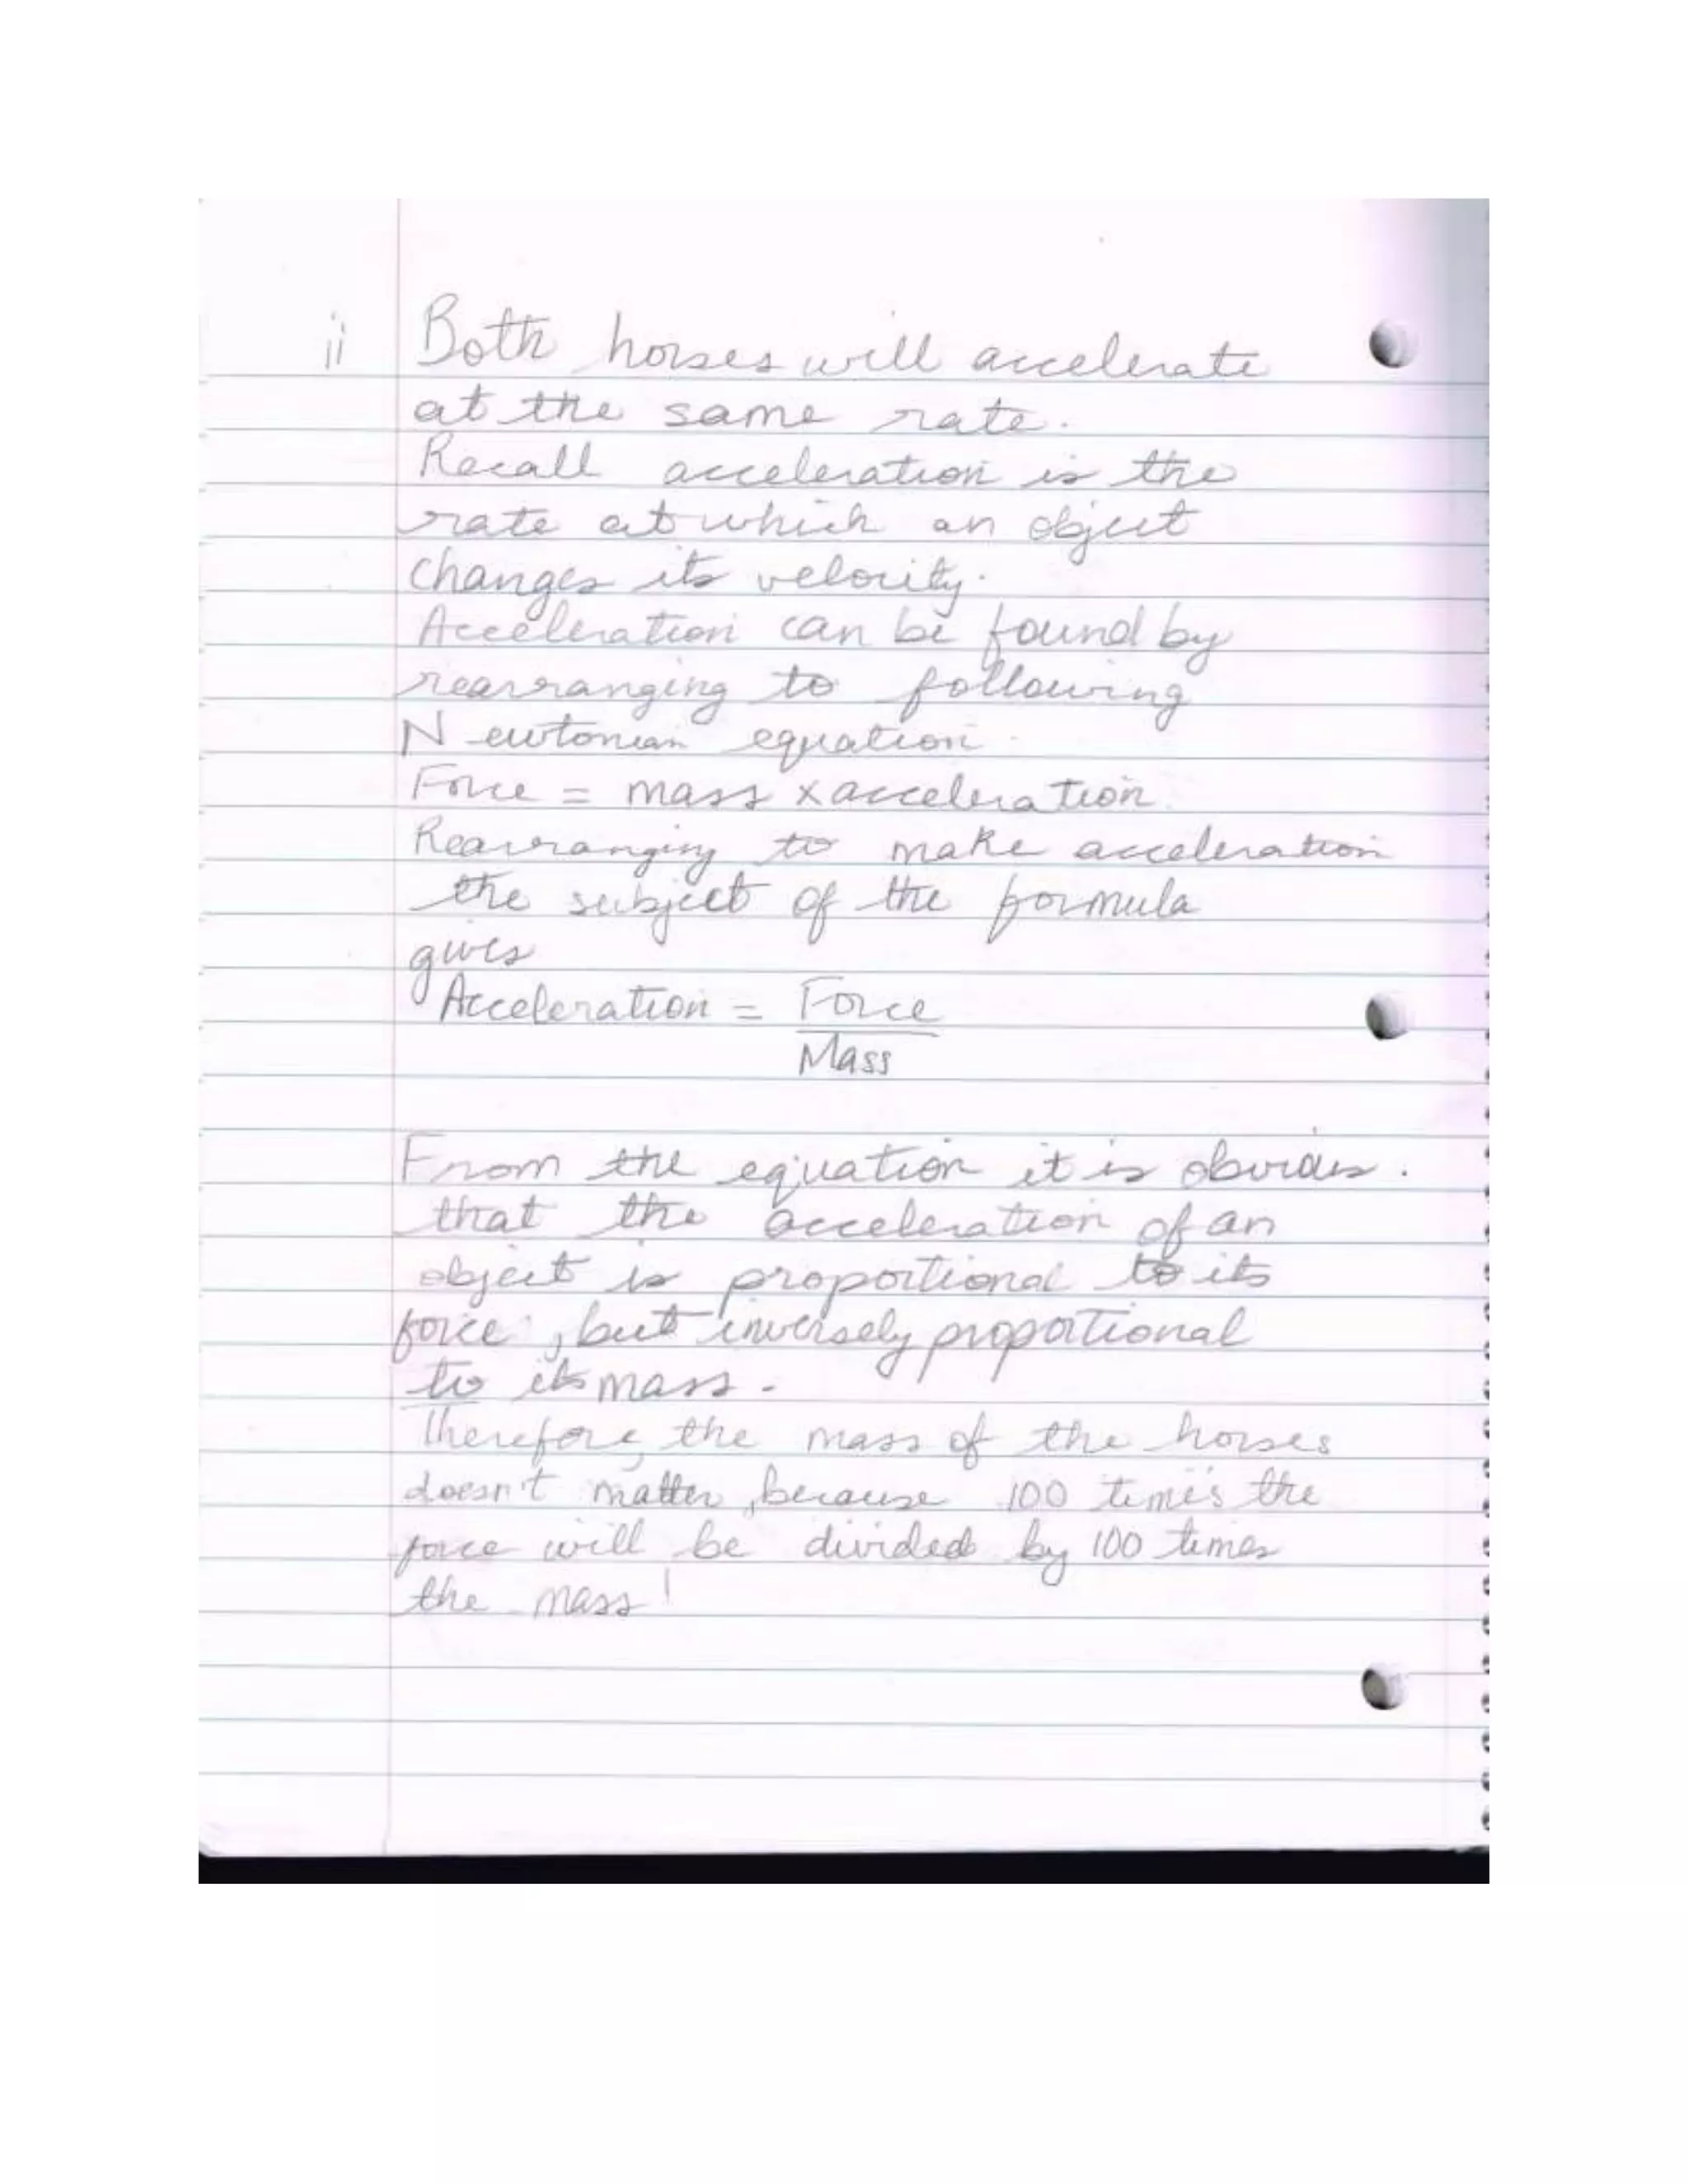 ii Both horses will accelerate
at the same rate.
Recall acceleration is the
rate at which an object
changes its velocity.
Acceleration can be found by
rearranging to following
Newtonian equation.
Force = mass x acceleration.
Rearranging to make acceleration
the subject of the formula
gives
Acceleration = Force
Mass
From the equation it is obvious.
that the acceleration of an
object is proportional to its
force, but inversely proportional
to its mass.
Therefore, the mass of the horses
doesn't matter, because 100 times the
force will be divided by 100 times
the mass!